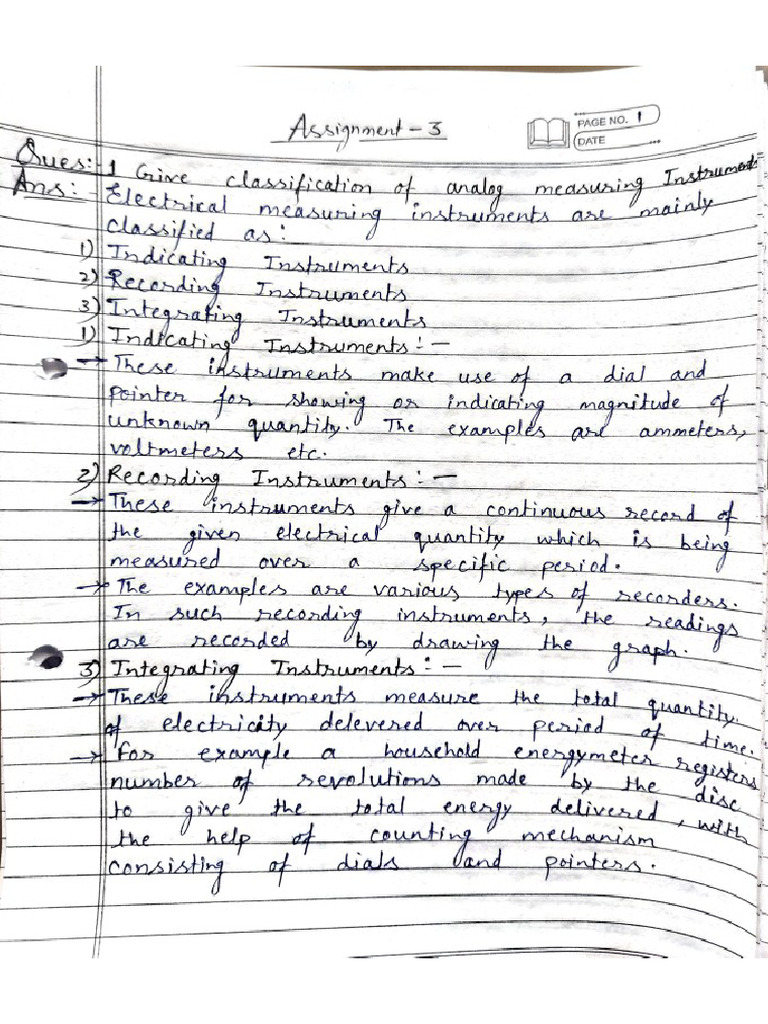 Assignment - 3
PAGE NO. 1
DATE
Ques:- 1 Give classification of analog measuring Instruments
Ans:- Electrical measuring instruments are mainly
classified as:
1) Indicating Instruments
2) Recording Instruments
3) Integrating Instruments
1) Indicating Instruments:-
→ These instruments make use of a dial and
pointer for showing or indicating magnitude of
unknown quantity. The examples are ammeters,
voltmeters etc.
2) Recording Instruments:-
→ These instruments give a continuous record of
the given electrical quantity which is being
measured over a specific period.
→ The examples are various types of recorders.
In such recording instruments, the readings
are recorded by drawing the graph.
3) Integrating Instruments:-
→ These instruments measure the total quantity
of electricity delevered over period of time.
→ For example a household energymeter registers
number of revolutions made by the disc
to give the total energy delivered, with
the help of counting mechanism
consisting of dials and pointers.